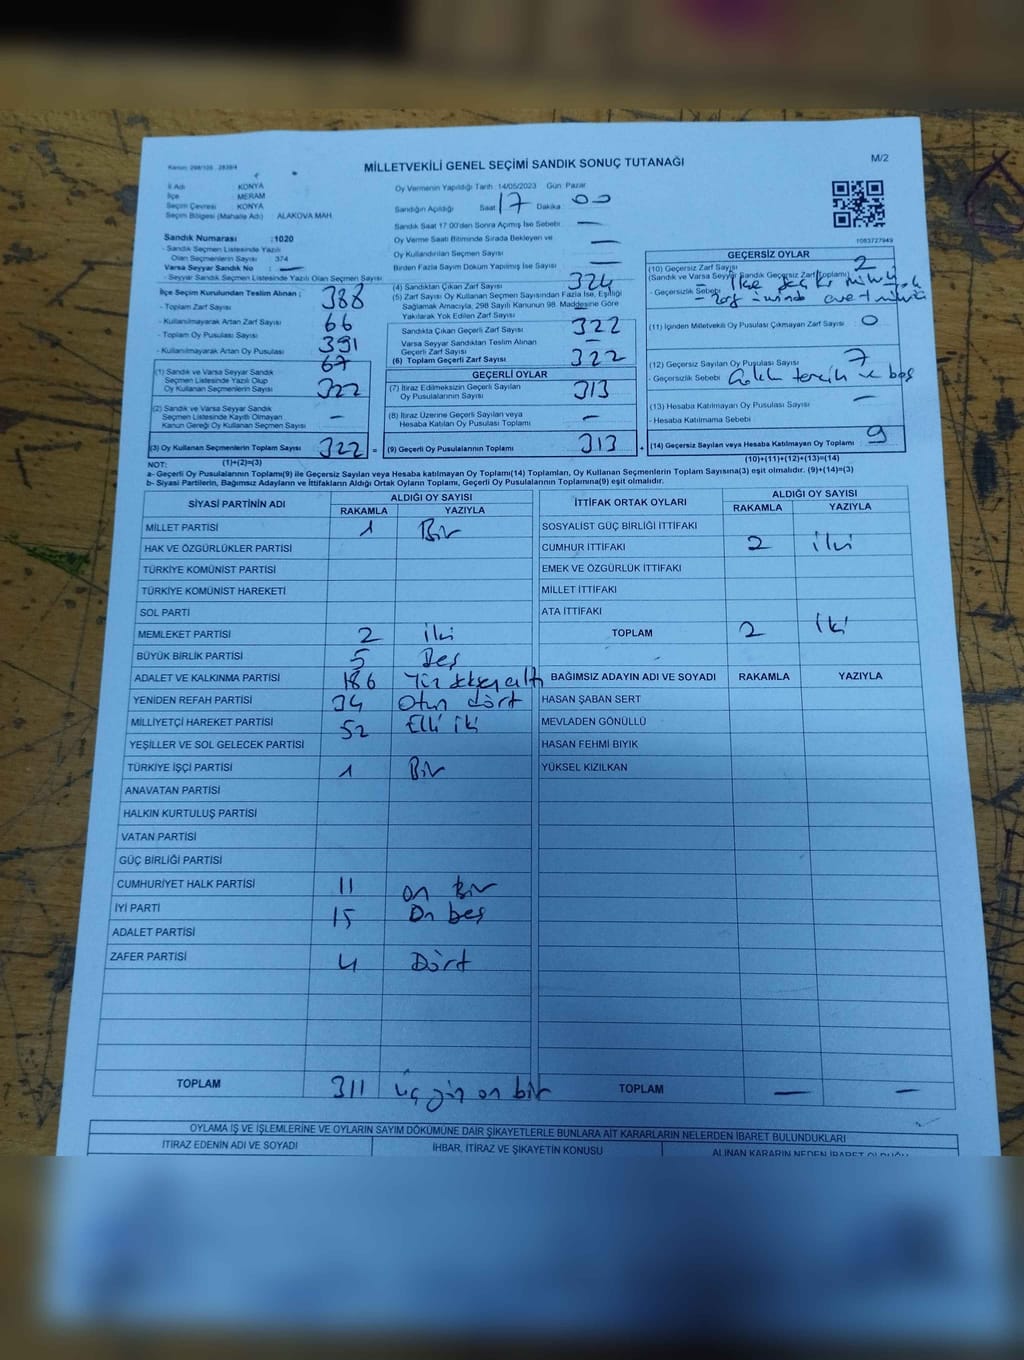 MİLLETVEKİLİ GENEL SEÇİMİ SANDIK SONUÇ TUTANAĞI
M/2
İl Adı : KONYA
İlçe : MERAM
Seçim Çevresi : KONYA
Seçim Bölgesi (Mahalle Adı) : ALAKOVA MAH.
Sandık Numarası : 1020
- Sandık Seçmen Listesinde Yazılı Olan Seçmenlerin Sayısı : 374
Varsa Seyyar Sandık No : —
- Seyyar Sandık Seçmen Listesinde Yazılı Olan Seçmen Sayısı
Oy Vermenin Yapıldığı Tarih :14/05/2023 Gün Pazar
Sandığın Açıldığı Saat 17 Dakika 00
Sandık Saat 17:00'den Sonra Açılmış İse Sebebi —
Oy Verme Saati Bitiminde Sırada Bekleyen ve —
Oy Kullandırılan Seçmen Sayısı
Birden Fazla Sayım Döküm Yapılmış İse Sayısı —
1083727949
İlçe Seçim Kurulundan Teslim Alınan ;
- Toplam Zarf Sayısı 388
- Kullanılmayarak Artan Zarf Sayısı 66
- Toplam Oy Pusulası Sayısı 391
- Kullanılmayarak Artan Oy Pusulası 67
(1) Sandık ve Varsa Seyyar Sandık
Seçmen Listesinde Yazılı Olup
Oy Kullanan Seçmenlerin Sayısı 322
(2) Sandık ve Varsa Seyyar Sandık
Seçmen Listesinde Kayıtlı Olmayan
Kanun Gereği Oy Kullanan Seçmen Sayısı —
(3) Oy Kullanan Seçmenlerin Toplam Sayısı 322
(1)+(2)=(3)
(4) Sandıktan Çıkan Zarf Sayısı 324
(5) Zarf Sayısı Oy Kullanan Seçmen Sayısından Fazla İse, Eşitliği
Sağlamak Amacıyla, 298 Sayılı Kanunun 98. Maddesine Göre
Yakılarak Yok Edilen Zarf Sayısı
Sandıkta Çıkan Geçerli Zarf Sayısı 322
Varsa Seyyar Sandıktan Teslim Alınan
Geçerli Zarf Sayısı —
(6) Toplam Geçerli Zarf Sayısı 322
GEÇERLİ OYLAR
(7) İtiraz Edilmeksizin Geçerli Sayılan
Oy Pusulalarının Sayısı 313
(8) İtiraz Üzerine Geçerli Sayılan veya
Hesaba Katılan Oy Pusulası Toplamı —
= (9) Geçerli Oy Pusulalarının Toplamı 313
GEÇERSİZ OYLAR
(10) Geçersiz Zarf Sayısı 2
(Sandık ve Varsa Seyyar Sandık Geçersiz Zarf Toplamı)
- Geçersizlik Sebebi
(11) İçinden Milletvekili Oy Pusulası Çıkmayan Zarf Sayısı 0
(12) Geçersiz Sayılan Oy Pusulası Sayısı 7
- Geçersizlik Sebebi tercih ve boş
(13) Hesaba Katılmayan Oy Pusulası Sayısı —
- Hesaba Katılmama Sebebi
+ (14) Geçersiz Sayılan veya Hesaba Katılmayan Oy Toplamı 9
(10)+(11)+(12)+(13)=(14)
NOT:
a- Geçerli Oy Pusulalarının Toplamı(9) ile Geçersiz Sayılan veya Hesaba katılmayan Oy Toplamı(14) Toplamları, Oy Kullanan Seçmenlerin Toplam Sayısına(3) eşit olmalıdır. (9)+(14)=(3)
b- Siyasi Partilerin, Bağımsız Adayların ve İttifakların Aldığı Ortak Oyların Toplamı, Geçerli Oy Pusulalarının Toplamına(9) eşit olmalıdır.
SİYASİ PARTİNİN ADI ALDIĞI OY SAYISI
RAKAMLA YAZIYLA
MİLLET PARTİSİ 1 Bir
HAK VE ÖZGÜRLÜKLER PARTİSİ
TÜRKİYE KOMÜNİST PARTİSİ
TÜRKİYE KOMÜNİST HAREKETİ
SOL PARTİ
MEMLEKET PARTİSİ 2 iki
BÜYÜK BİRLİK PARTİSİ 5 Beş
ADALET VE KALKINMA PARTİSİ 186 Yüz seksen altı
YENİDEN REFAH PARTİSİ 34 Otuz dört
MİLLİYETÇİ HAREKET PARTİSİ 52 Elli iki
YEŞİLLER VE SOL GELECEK PARTİSİ
TÜRKİYE İŞÇİ PARTİSİ 1 Bir
ANAVATAN PARTİSİ
HALKIN KURTULUŞ PARTİSİ
VATAN PARTİSİ
GÜÇ BİRLİĞİ PARTİSİ
CUMHURİYET HALK PARTİSİ 11 on bir
İYİ PARTİ 15 On beş
ADALET PARTİSİ
ZAFER PARTİSİ 4 Dört
TOPLAM 311 üç yüz on bir
İTTİFAK ORTAK OYLARI ALDIĞI OY SAYISI
RAKAMLA YAZIYLA
SOSYALİST GÜÇ BİRLİĞİ İTTİFAKI
CUMHUR İTTİFAKI 2 iki
EMEK VE ÖZGÜRLÜK İTTİFAKI
MİLLET İTTİFAKI
ATA İTTİFAKI
TOPLAM 2 iki
BAĞIMSIZ ADAYIN ADI VE SOYADI RAKAMLA YAZIYLA
HASAN ŞABAN SERT
MEVLADEN GÖNÜLLÜ
HASAN FEHMİ BIYIK
YÜKSEL KIZILKAN
TOPLAM — —
OYLAMA İŞ VE İŞLEMLERİNE VE OYLARIN SAYIM DÖKÜMÜNE DAİR ŞİKAYETLERLE BUNLARA AİT KARARLARIN NELERDEN İBARET BULUNDUKLARI
İTİRAZ EDENİN ADI VE SOYADI İHBAR, İTİRAZ VE ŞİKAYETİN KONUSU ALINAN KARARIN NEDEN İBARET OLDUĞU